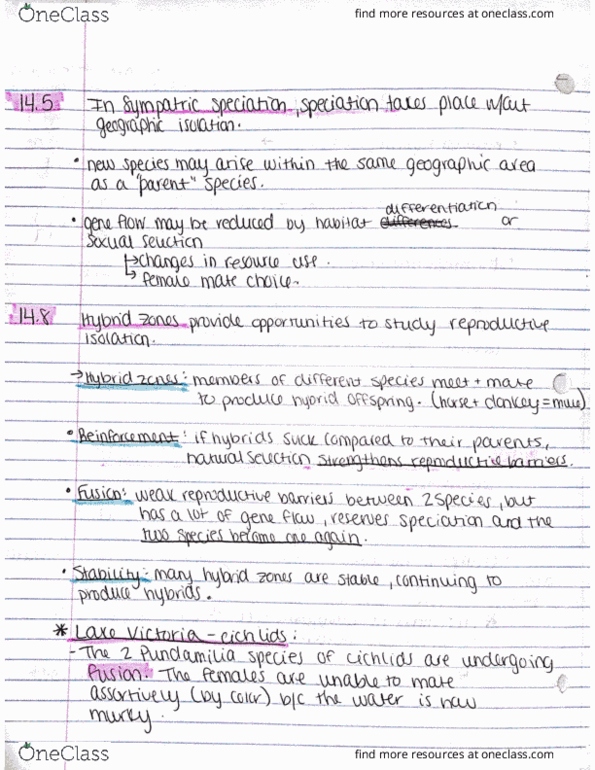 OneClass
find more resources at oneclass.com
14.5 In Sympatric speciation, speciation takes place w/out
geographic isolation.
• new species may arise within the same geographic area
as a "parent" species.
differentiation
• gene flow may be reduced by habitat differences or
sexual selection
↳ changes in resource use.
↳ female mate choice.
14.8 Hybrid zones provide opportunities to study reproductive
isolation.
→ Hybrid zones: members of different species meet + mate
to produce hybrid offspring. (horse + donkey = mule)
• Reinforcement: if hybrids suck compared to their parents,
natural selection strengthens reproductive barriers.
• Fusion: weak reproductive barriers between 2 species, but
has a lot of gene flow, reserves speciation and the
two species become one again.
• Stability: many hybrid zones are stable, continuing to
produce hybrids.
* Lake Victoria - cichlids:
- The 2 Pundamilia species of cichlids are undergoing
fusion. The females are unable to mate
assortively (by color) b/c the water is now
murky.
OneClass
find more resources at oneclass.com